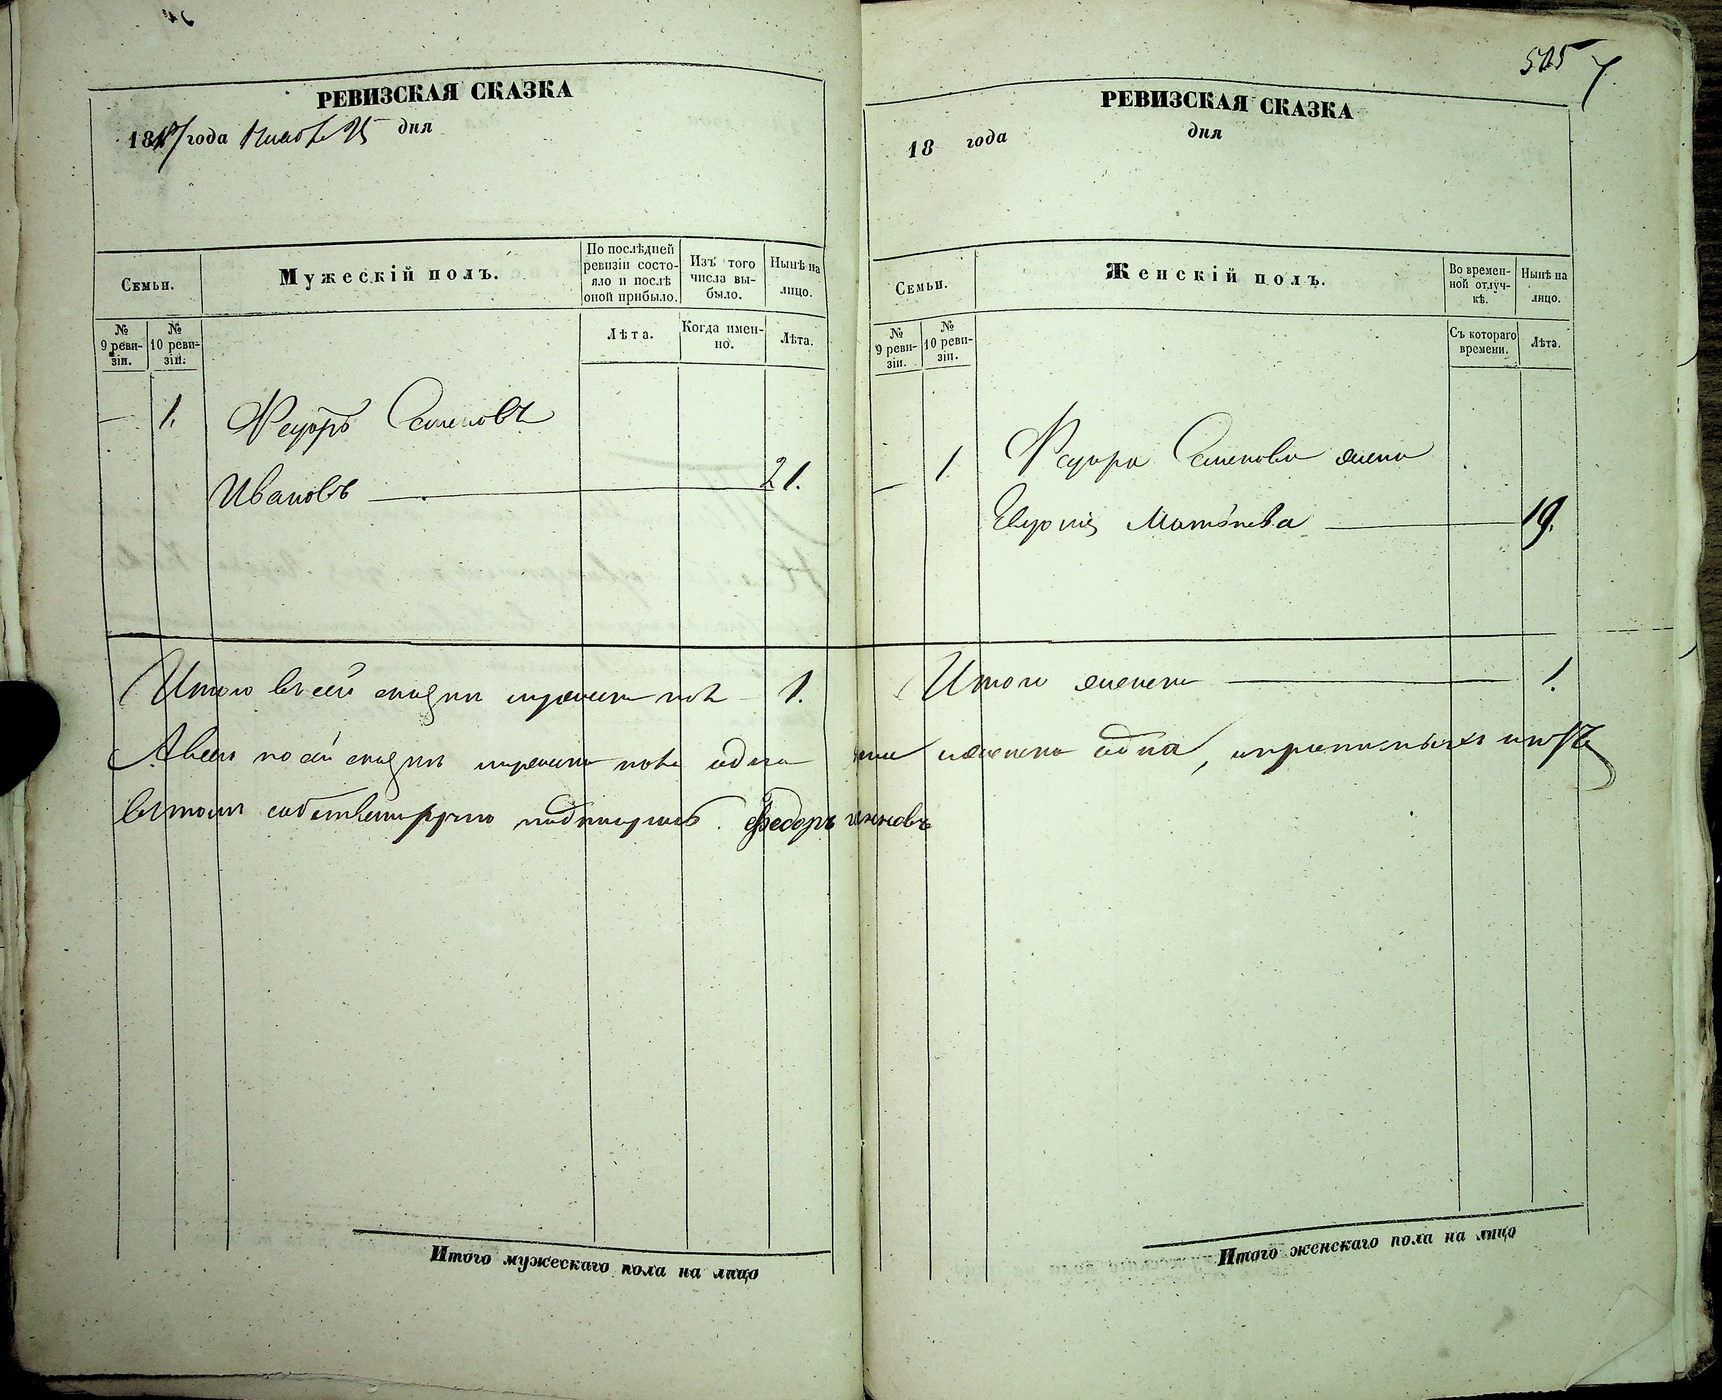 РЕВИЗСКАЯ СКАЗКА
18 года 25 дня
Семьи.
Мужескій полъ.
По послѣдней ревизіи состояло и послѣ оной прибыло.
Изъ того числа выбыло.
Нынѣ на лицо.
№ 9 ревизіи.
№ 10 ревизіи.
Лѣта.
Когда именно.
Лѣта.
— 1. Федоръ Семеновъ
Ивановъ — 21.
Итого въ сей сказки мужеска пола — 1.
А всего по сей сказки мужеска пола одна
въ томъ собственноручно подписуюсь. федоръ ивановъ
Итого мужескаго пола на лицо
505 7
РЕВИЗСКАЯ СКАЗКА
18 года дня
Семьи.
Женскій полъ.
Во временной отлучкѣ.
Нынѣ на лицо.
№ 9 ревизіи.
№ 10 ревизіи.
Съ котораго времени.
Лѣта.
— 1. Федора Семенова жена
Матвѣева — 19.
Итого женска — 1.
женска одна,
Итого женскаго пола на лицо